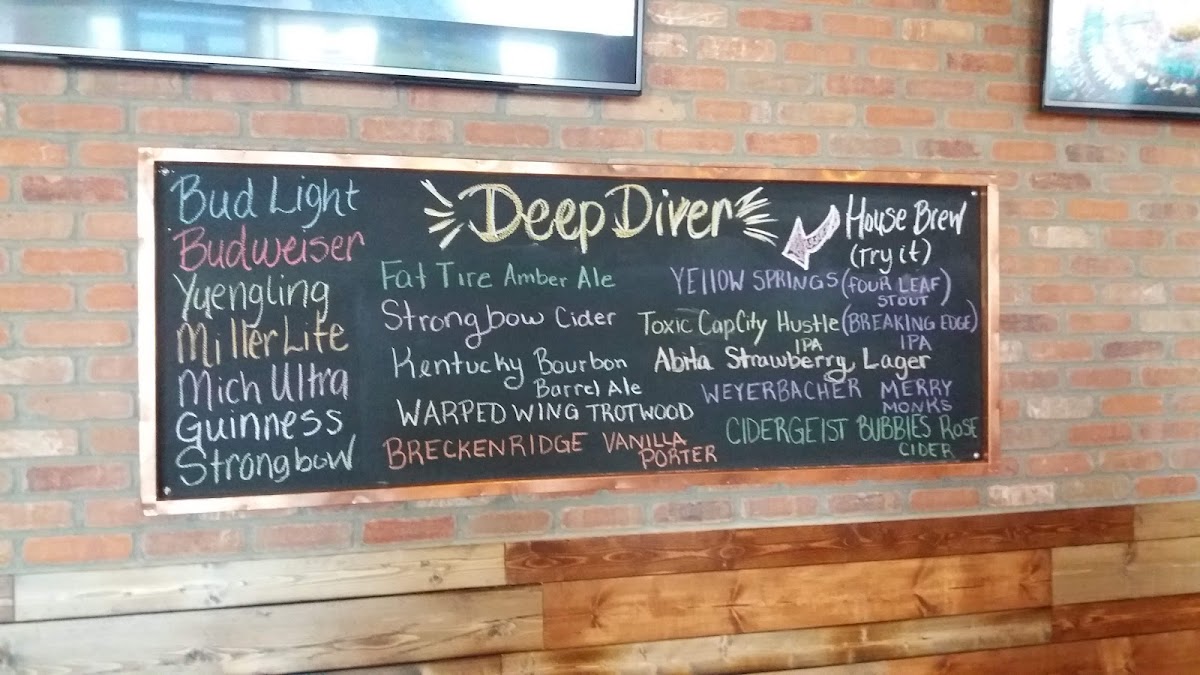 Bud Light
Budweiser
Yuengling
Miller Lite
Mich Ultra
Guinness
Strongbow
Deep Diver
Fat Tire Amber Ale
Strongbow Cider
Kentucky Bourbon
Barrel Ale
WARPED WING TROTWOOD
BRECKENRIDGE VANILLA
PORTER
House Brew
(Try it)
YELLOW SPRINGS (FOUR LEAF)
STOUT
Toxic CapCity Hustle (BREAKING EDGE)
IPA IPA
Abita Strawberry Lager
WEYERBACHER MERRY
MONKS
CIDERGEIST BUBBIES ROSE
CIDER